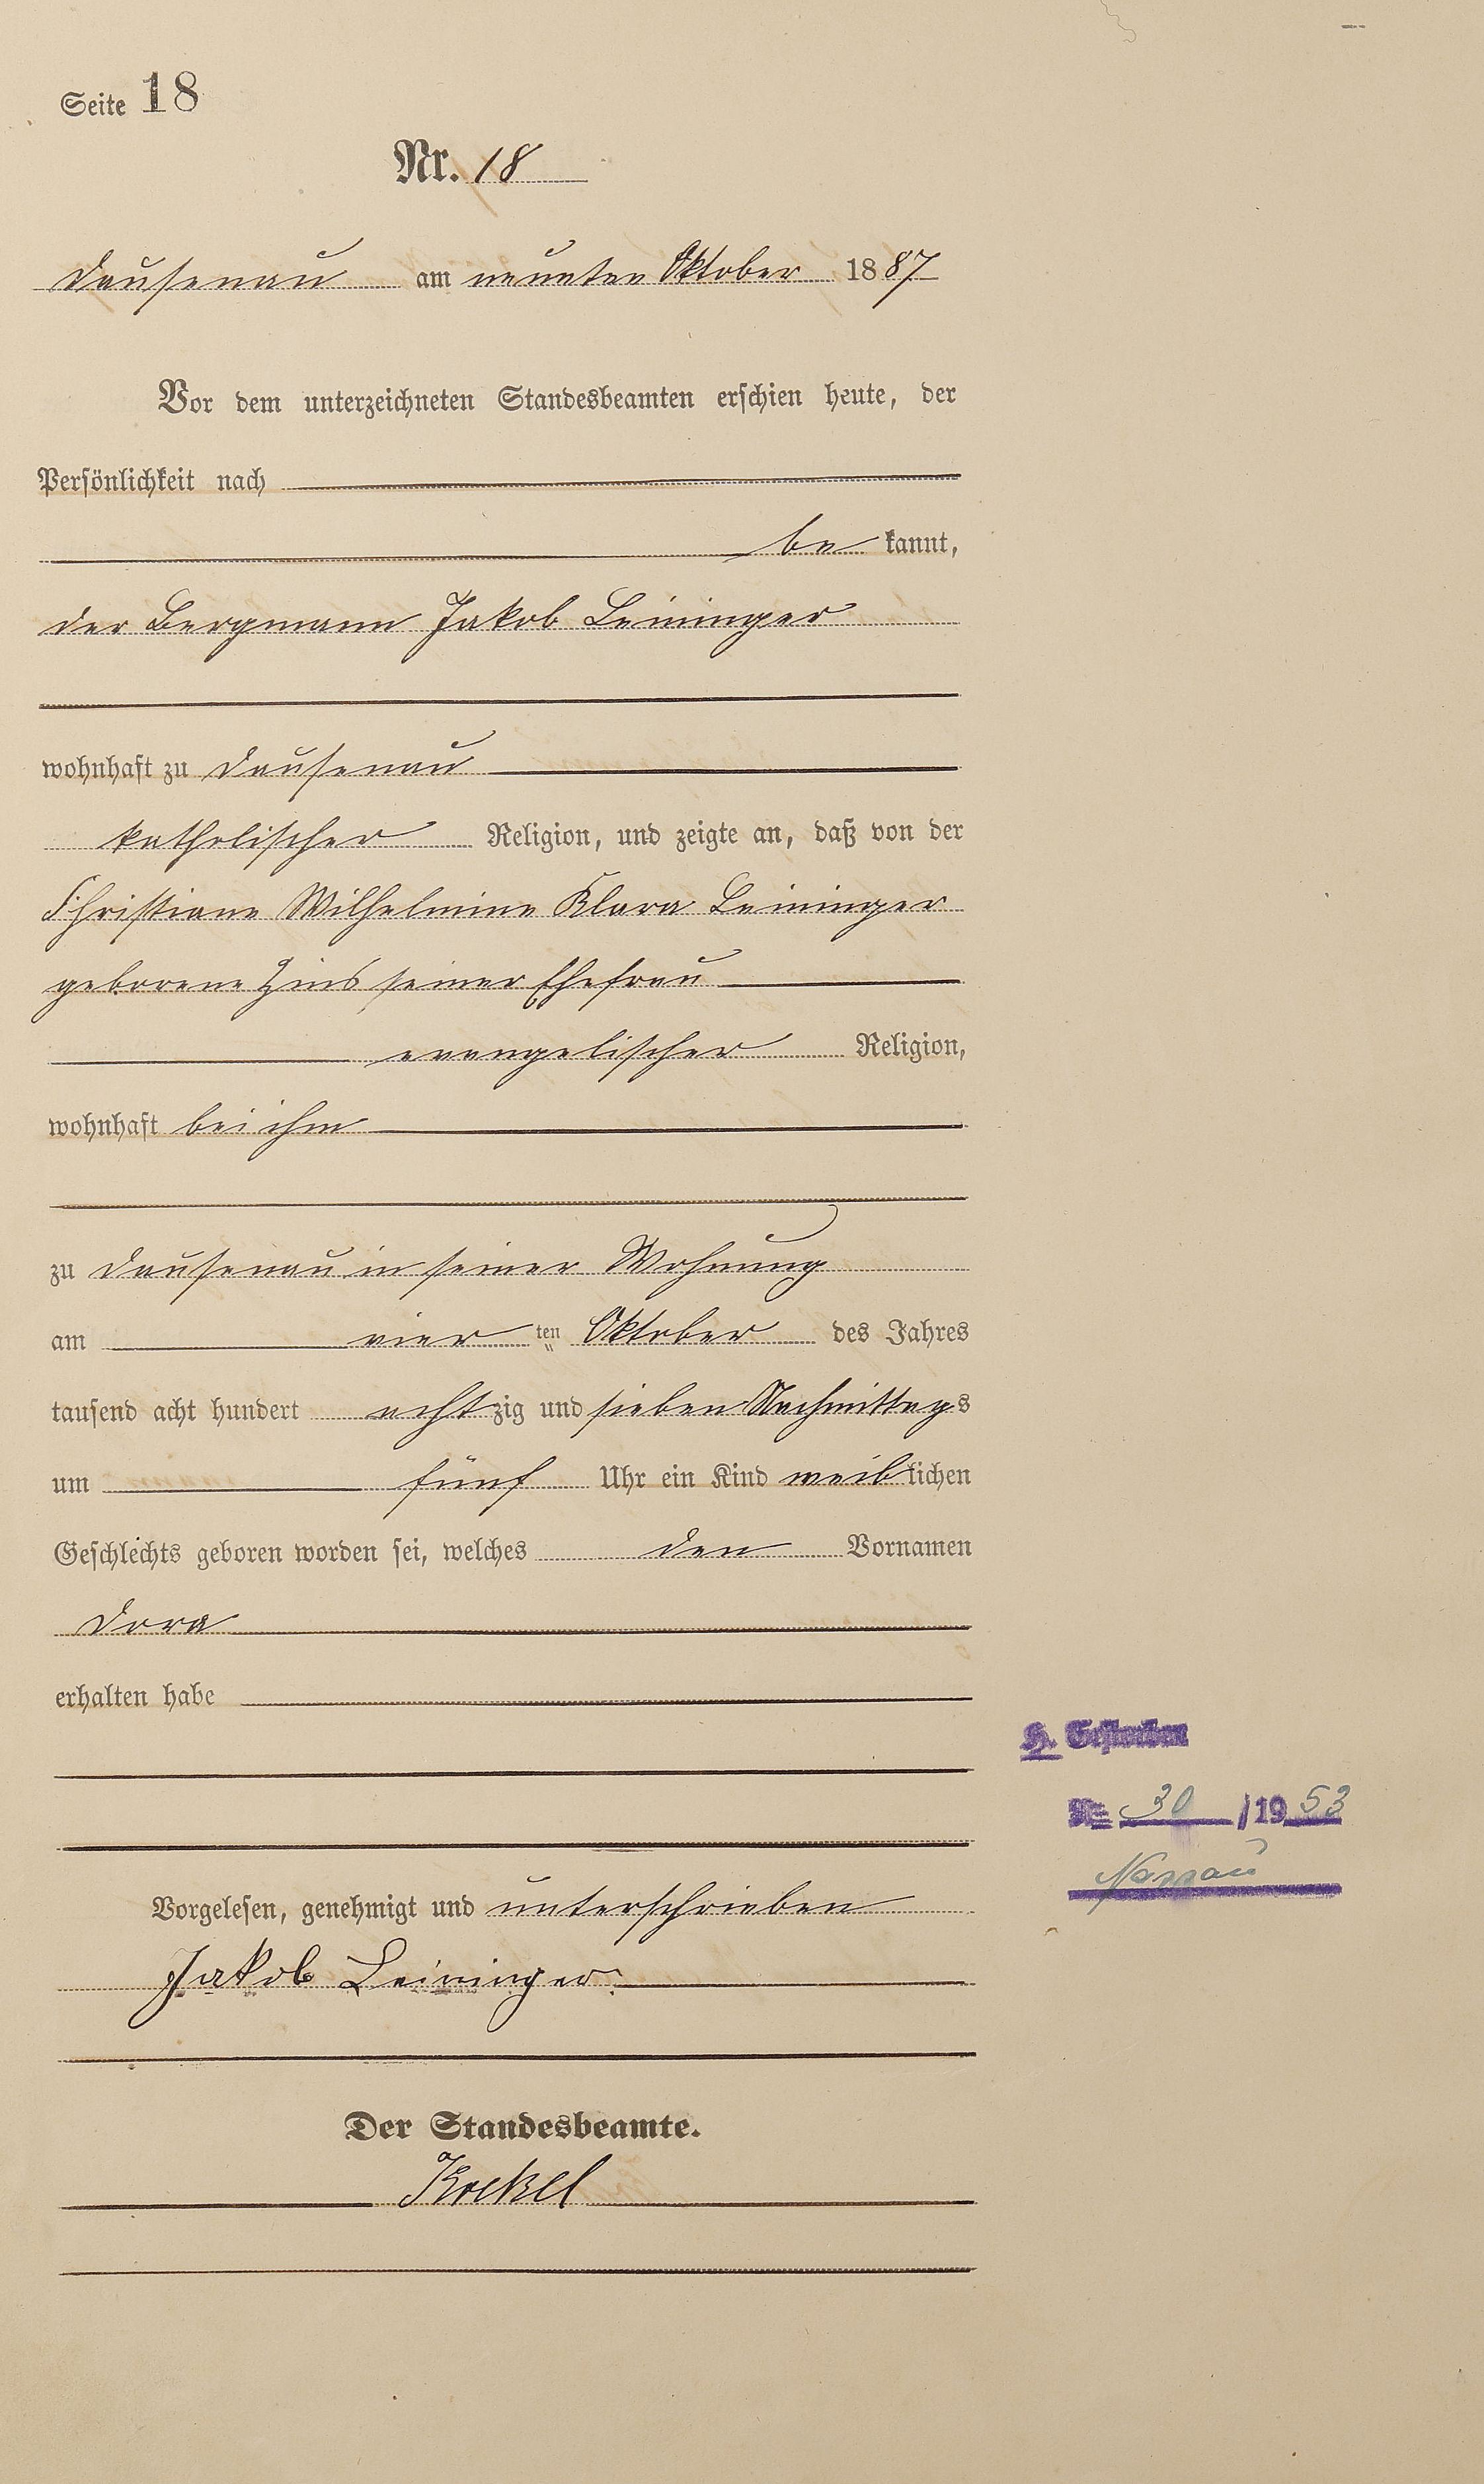 Seite 18
Nr. 18
Dausenau am neunten Oktober 1887
Vor dem unterzeichneten Standesbeamten erschien heute, der
Persönlichkeit nach
be kannt,
der Bergmann Jakob Leininger
wohnhaft zu Dausenau
katholischer Religion, und zeigte an, daß von der
Christiane Wilhelmine Klara Leininger
geborene Zins seiner Ehefrau
evangelischer Religion,
wohnhaft bei ihm
zu Dausenau in seiner Wohnung
am vier ten Oktober des Jahres
tausend acht hundert achtzig und sieben Nachmittags
um fünf Uhr ein Kind weiblichen
Geschlechts geboren worden sei, welches den Vornamen
Dora
erhalten habe
H. Gestorben
Nr. 30 /1953
Nassau
Vorgelesen, genehmigt und unterschrieben
Jakob Leininger.
Der Standesbeamte.